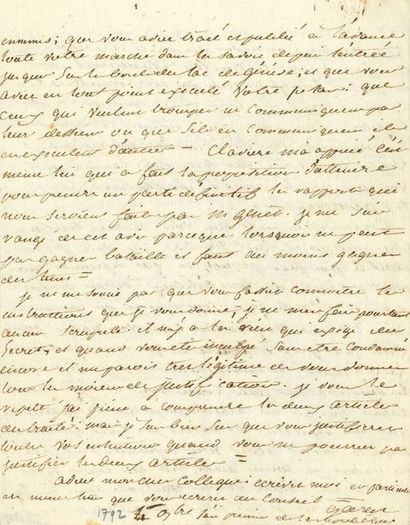 ennemis; que vous aviez tracé et publié à l'avance
toute votre marche dans la Savoie depuis l'entrée
jusque sur le bord du lac de Genève; et que vous
avez en tout point exécuté votre plan: que
ceux qui veulent tromper ne communiquent pas
leur dessein ou que s'ils en communiquent ils
en exécutent d'autres = Claviere m'a appuié
même lui qui a fait la proposition d'attendre
pour prendre un parti définitif les rapports qui
nous seroient faits par m genet. je me suis
rangé de cet avis parceque lorsqu'on ne peut
pas gagner bataille il faut au moins gagner
du tems =
je ne me soucie pas que vous fassiez connoitre les
instructions que je vous donne, je ne m'en fais pourtant
aucun scrupule. il n'y a là rien qui exige du
secret, et quand vous etes inculpé sans etre condamné
encore il me paroit très légitime de vous donner
tous les moiens de justification. je vous le
repete j'ai peine à comprendre les deux articles
du traité: mais je suis bien sur que vous justifierez
toutes vos intentions quand vous ne pourrez pas
justifier les deux articles =
adieu mon cher Collegue; ecrivez moi en particulier
en meme tems que vous ecrivez au Conseil
1792 8bre l'an premier de la République
Garat